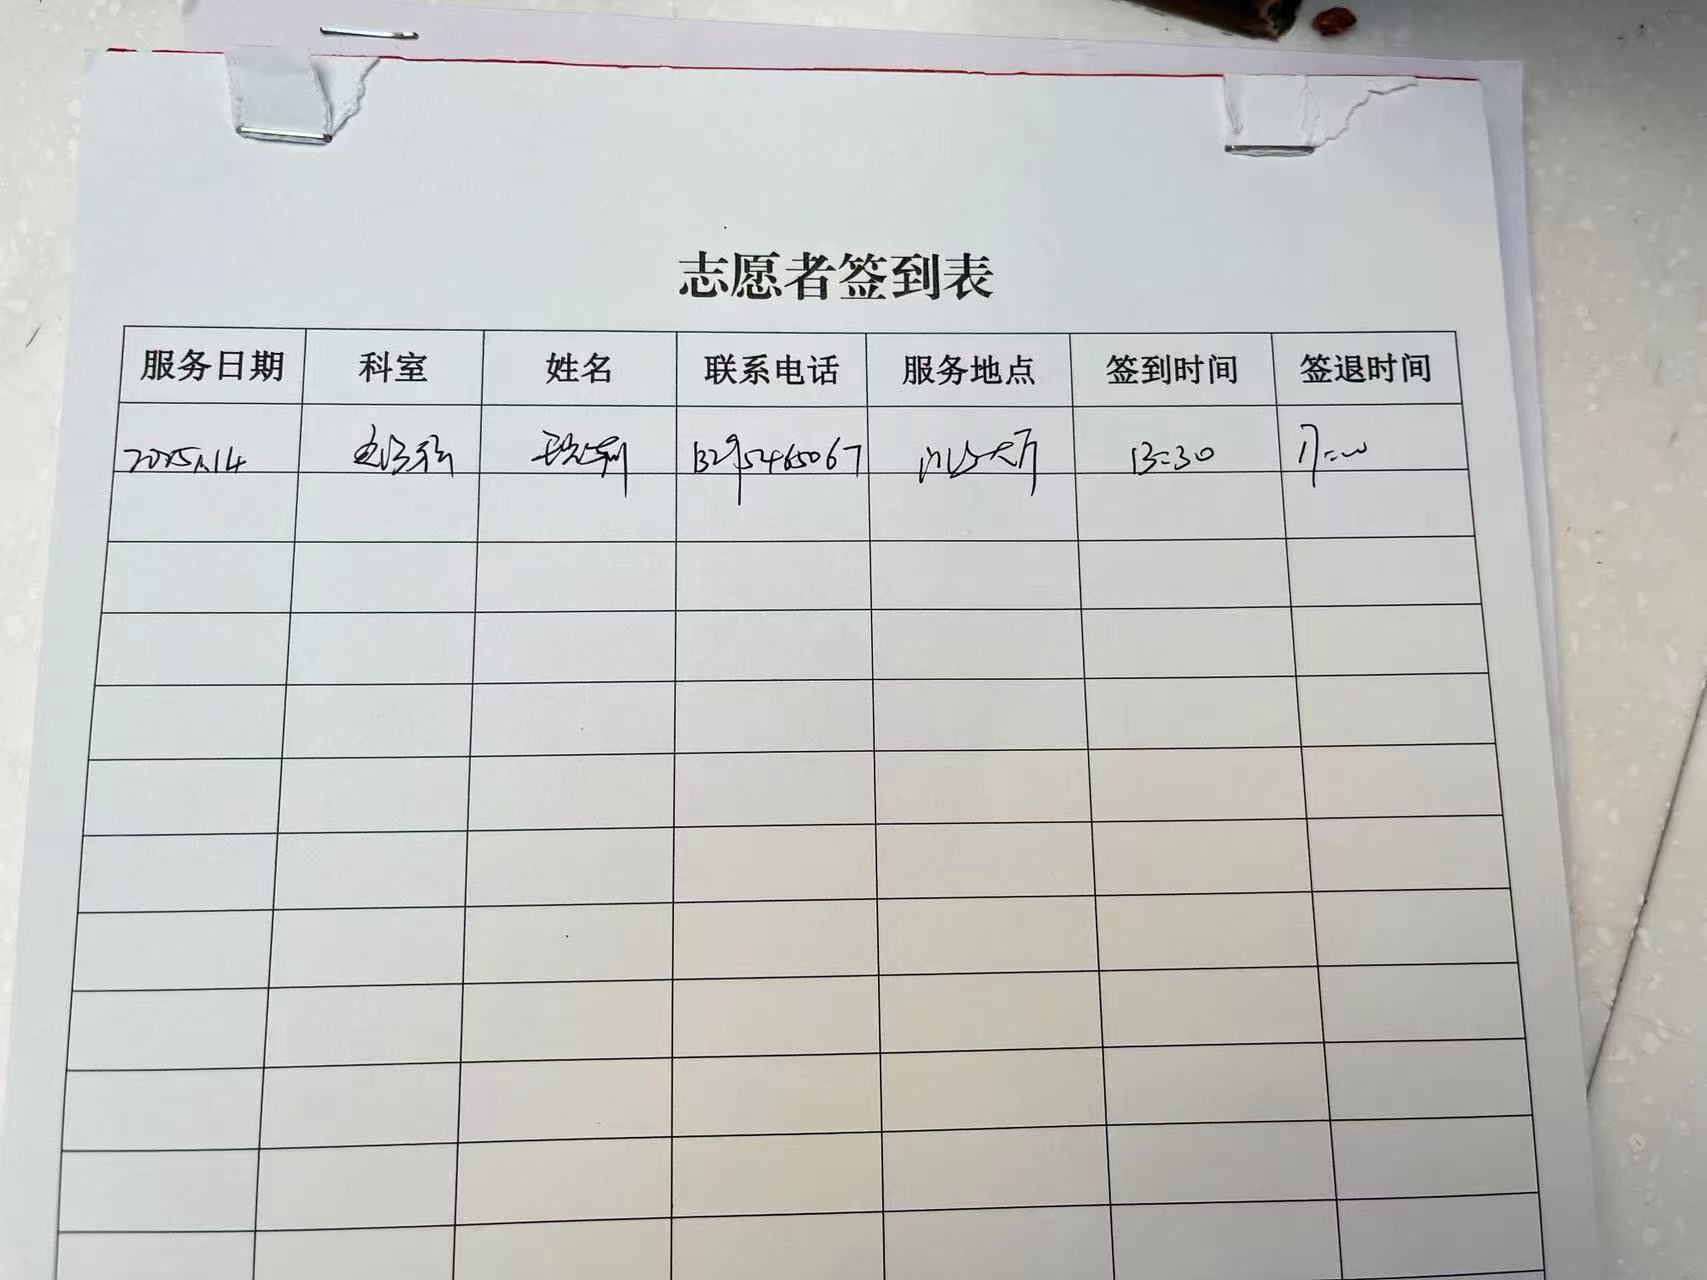 志愿者签到表
服务日期 科室 姓名 联系电话 服务地点 签到时间 签退时间
门诊大厅 13:30 17:00